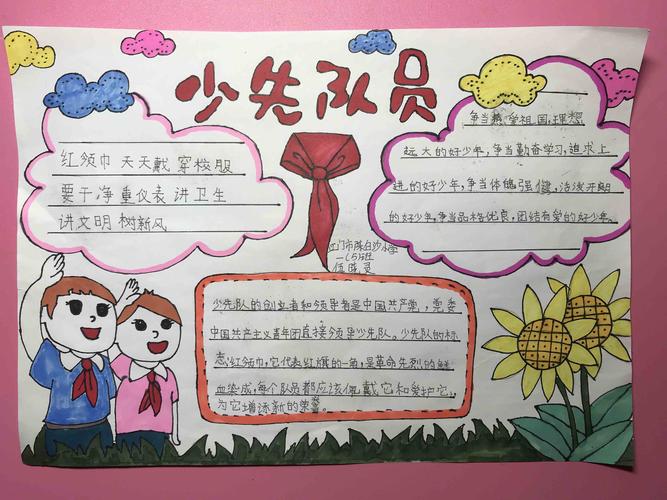 少先队员
红领巾 天天戴 穿校服
要干净 重仪表 讲卫生
讲文明 树新风
争当热爱祖国,理想
远大的好少年,争当勤奋学习,追求上
进的好少年,争当体魄强健,活泼开朗
的好少年,争当品格优良,团结有爱的好少年。
江门市陈白沙小学
一(5)班
伍 晓
少先队的创立者和领导者是中国共产党,党委
中国共产主义青年团直接领导少先队。少先队的标
志,红领巾,它代表红旗的一角,是革命先烈的鲜
血染成,每个队员都应该佩戴它和爱护它,
为它增添新的荣誉